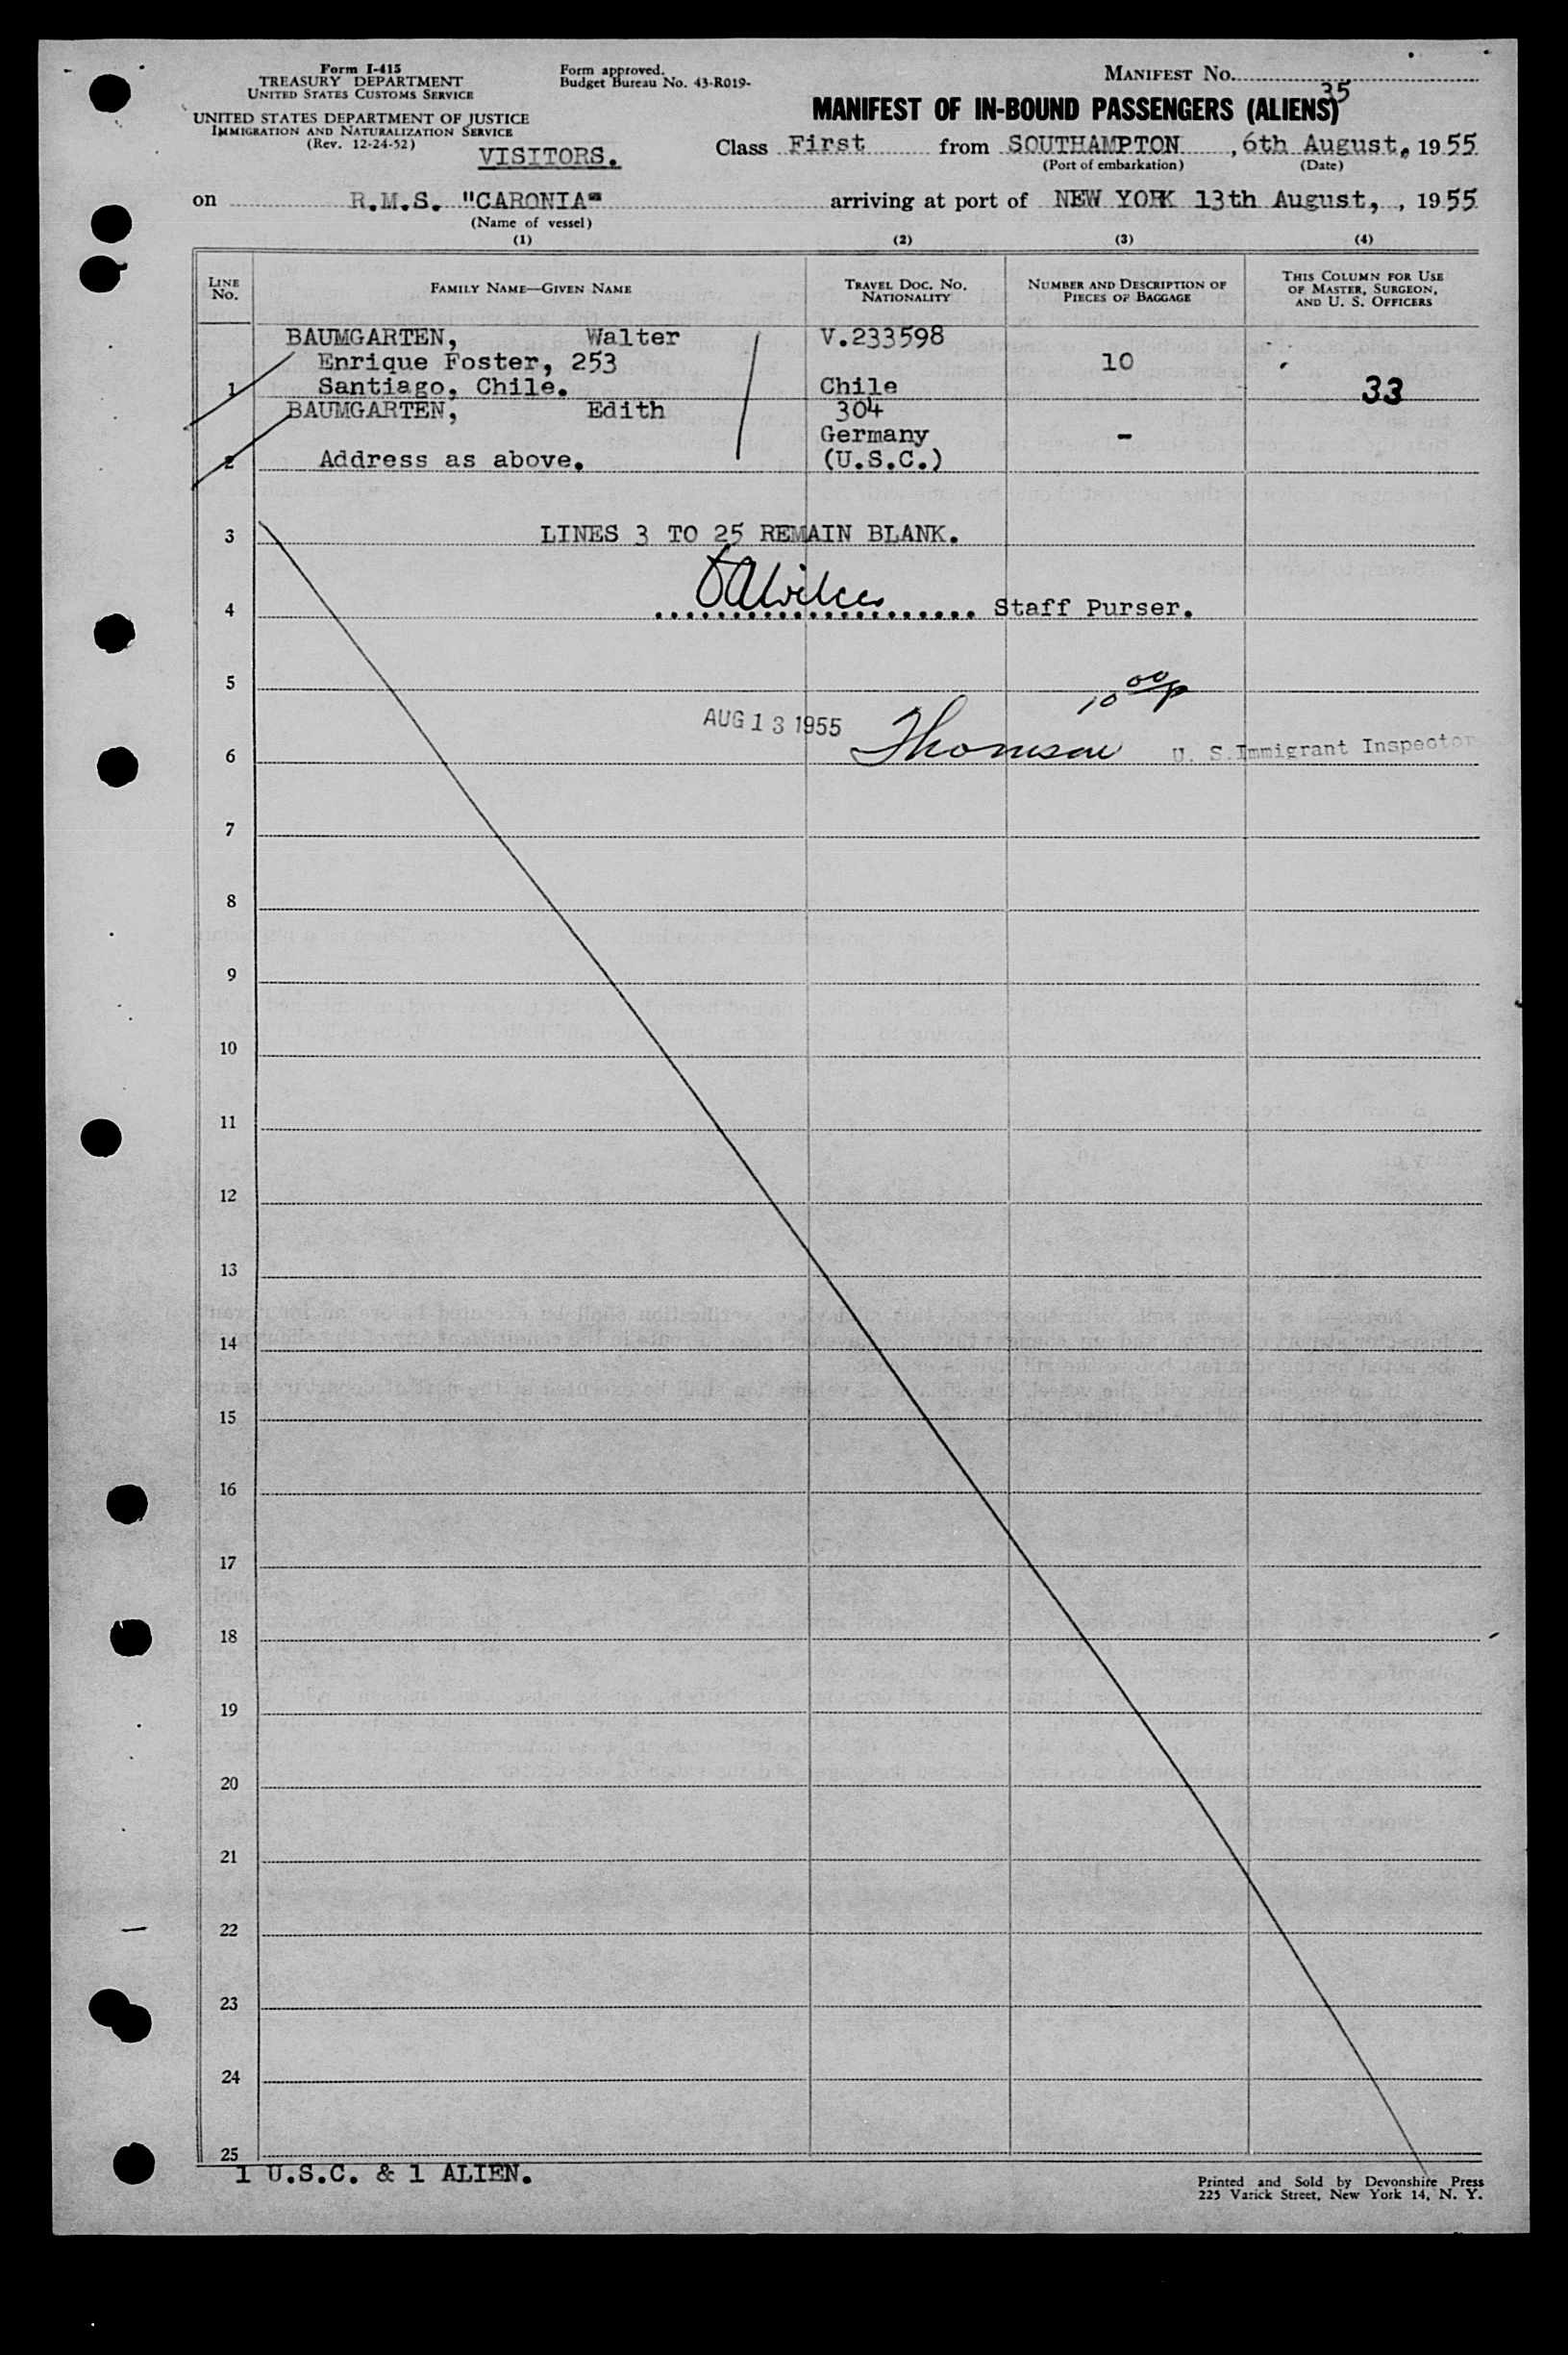 Form I-415
TREASURY DEPARTMENT
UNITED STATES CUSTOMS SERVICE
UNITED STATES DEPARTMENT OF JUSTICE
IMMIGRATION AND NATURALIZATION SERVICE
(Rev. 12-24-52)
VISITORS.
Form approved.
Budget Bureau No. 43-R019-
MANIFEST NO.
35
MANIFEST OF IN-BOUND PASSENGERS (ALIENS)
Class First from SOUTHAMPTON, 6th August, 1955
(Port of embarkation) (Date)
on R.M.S. "CARONIA" arriving at port of NEW YORK 13th August, , 1955
(Name of vessel)
(1) (2) (3) (4)
LINE NO.
FAMILY NAME—GIVEN NAME
TRAVEL DOC. NO.
NATIONALITY
NUMBER AND DESCRIPTION OF
PIECES OF BAGGAGE
THIS COLUMN FOR USE
OF MASTER, SURGEON,
AND U. S. OFFICERS
BAUMGARTEN, Walter V.233598
Enrique Foster, 253 10
1 Santiago, Chile. Chile 33
BAUMGARTEN, Edith 304
Germany -
2 Address as above. (U.S.C.)
3 LINES 3 TO 25 REMAIN BLANK.
4 Staff Purser.
5 10 00 p
AUG 13 1955 Thomson U. S. Immigrant Inspector
6
7
8
9
10
11
12
13
14
15
16
17
18
19
20
21
22
23
24
25
1 U.S.C. & 1 ALIEN.
Printed and Sold by Devonshire Press
225 Varick Street, New York 14, N. Y.